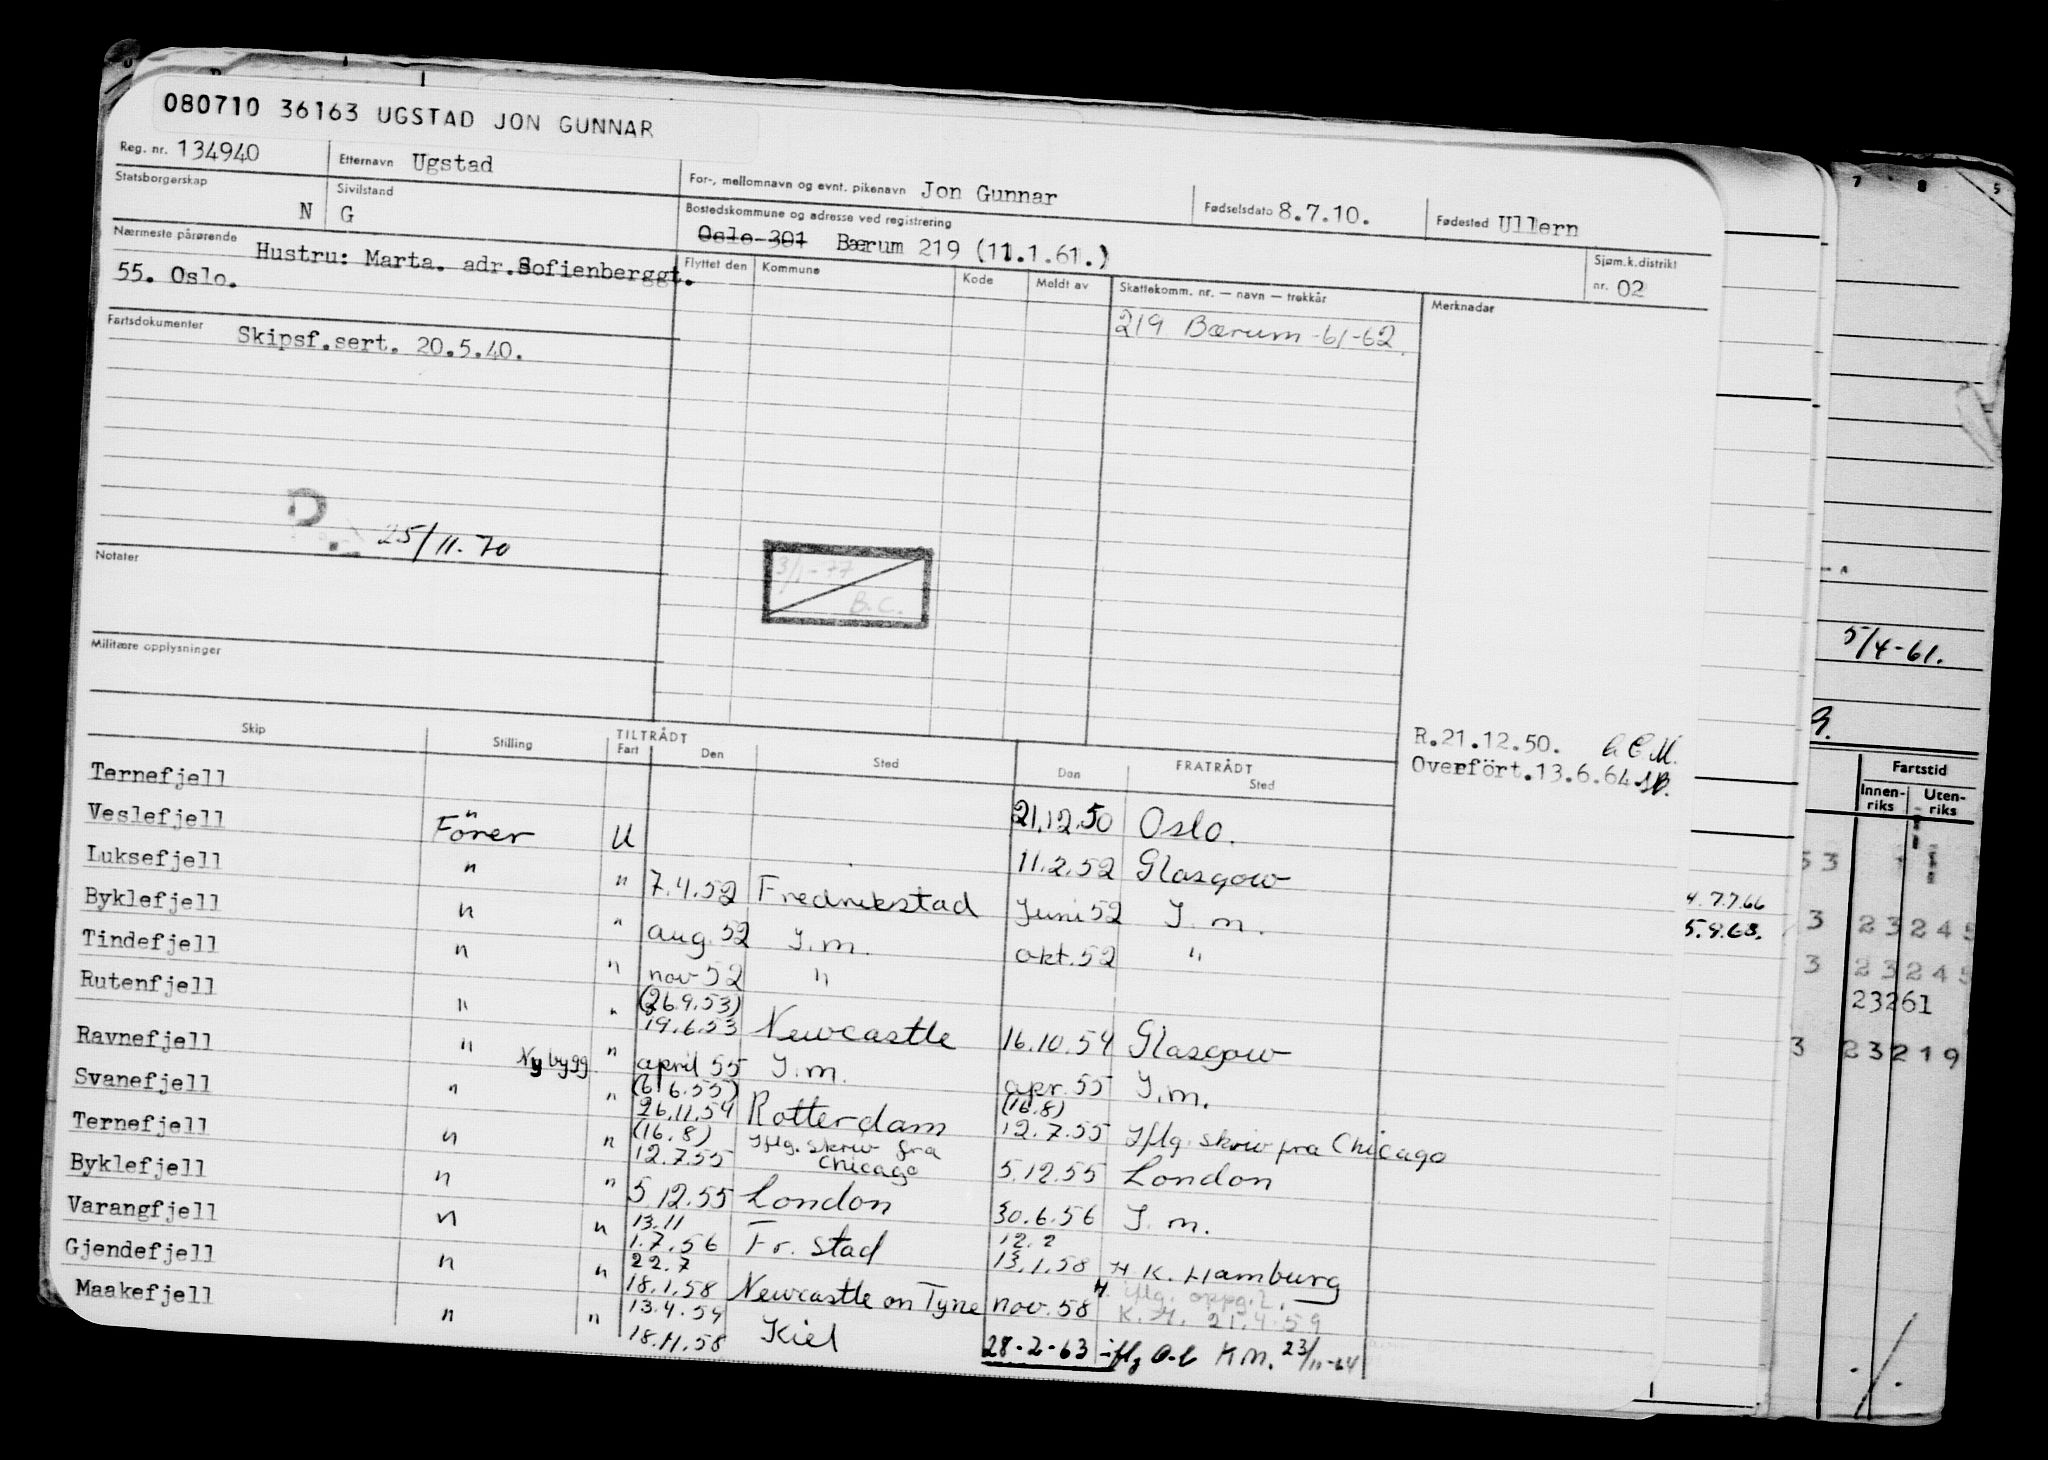 080710 36163 UGSTAD JON GUNNAR
Reg. nr. 134940 Etternavn Ugstad For-, mellomnavn og evnt. pikenavn Jon Gunnar Fødselsdato 8.7.10. Fødested Ullern
Statsborgerskap N Sivilstand G Bostedskommune og adresse ved registrering Oslo 301 Bærum 219 (11.1.61.)
Sjøm.k.distrikt nr. 02
Nærmeste pårørende Hustru: Marta. adr.Sofienberggt.
55. Oslo.
Flyttet den Kommune Kode Meldt av Skattekomm. nr. — navn — trekkår Merknader
219 Bærum -61-62.
Fartsdokumenter Skipsf.sert. 20.5.40.
D
25/11.70
3/1-77
B.C.
Notater
Militære opplysninger
R.21.12.50.
Overført.13.6.64
Skip Stilling TILTRÅDT Fart Den Sted FRATRÅDT Den Sted
Ternefjell 21.12.50 Oslo.
Veslefjell Förer U 11.2.52 Glasgow
Luksefjell " " 7.4.52 Fredrikstad Juni 52 I.m.
Byklefjell " " aug. 52 I.m. okt. 52 "
Tindefjell " " nov 52 "
Rutenfjell " " (26.9.53)
19.6.53 Newcastle 16.10.54 Glasgow
Ravnefjell " Nybygg. " april 55 I.m. apr. 55 I.m.
Svanefjell " " (6/6.55)
26.11.54 Rotterdam (16.8)
12.7.55 Iflg. skriv fra Chicago
Ternefjell " " (16.8)
12.7.55 Iflg. skriv fra
Chicago 5.12.55 London
Byklefjell " " 5.12.55 London 30.6.56 I.m.
Varangfjell " " 13.11
1.7.56 Fr. stad 12.2
13.1.58 H K. Hamburg
Gjendefjell " " 22.7
18.1.58 Newcastle on Tyne nov. 58 H. iflg. oppg.
K.H. 21.4.59
Maakefjell " " 13.4.59
18.11.58 Kiel 28-2-63 iflg KM. 23/11-64
7 8 5
5/4-61.
Fartstid
Innen-
riks
Uten-
riks
53
4. 7.7.66
5.9.63.
3 23245
3 23245
23261
3 23219